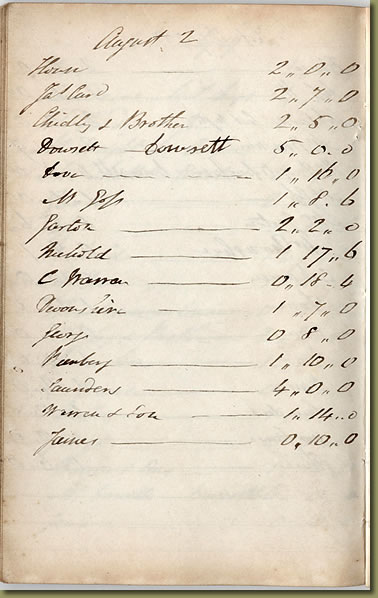 August 2
2 " 0 " 0
Jas Card 2 " 7 " 0
Chidley & Brother 2 " 5 " 0
Dowsett Dowsett 5 " 0 . 0
1 " 16 " 0
Mr Goss 1 " 8 . 6
Garton 2 " 2 " 0
Newbold 1 17 " 6
C Warren 0 " 18 - 4
Devonshire 1 " 7 " 0
0 8 " 0
1 " 10 " 0
Saunders 4 " 0 " 0
Warren & Son 1 " 14 . 0
James 0 " 10 " 0